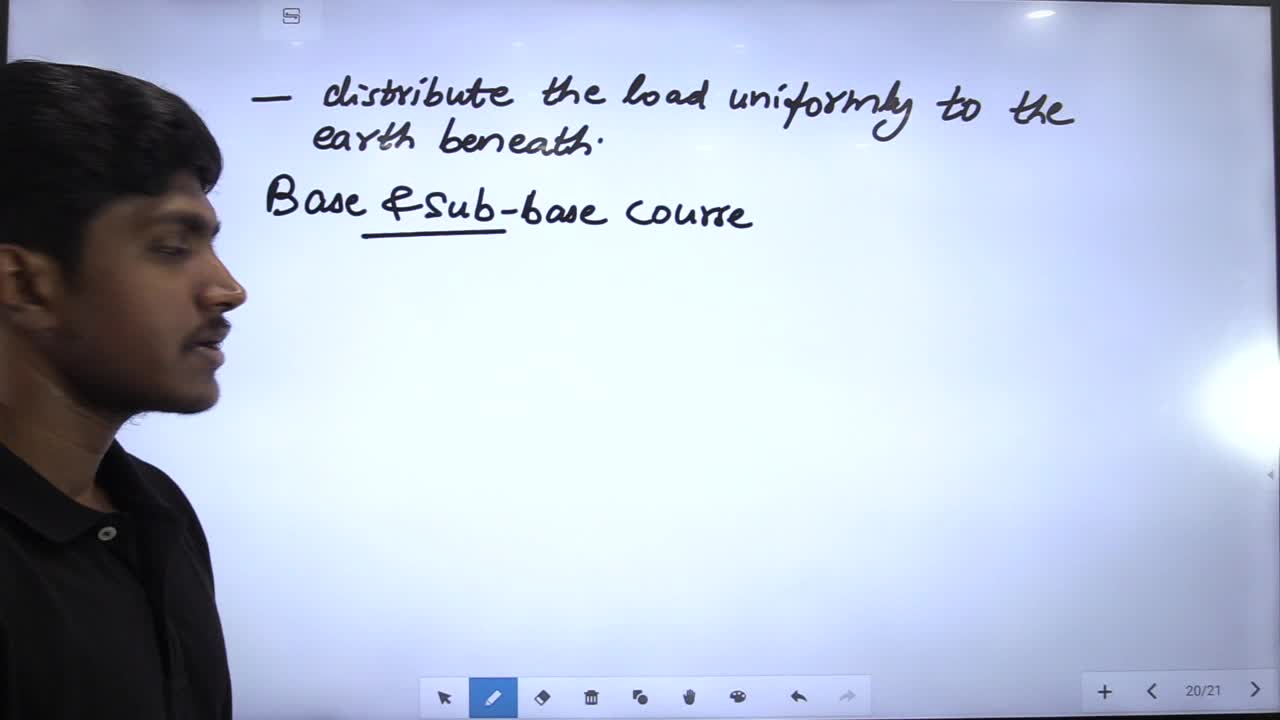 — distribute the load uniformly to the
earth beneath.
Base & Sub-base course
20/21